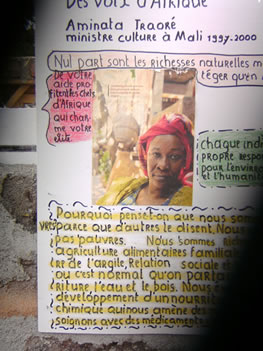 Des voix d'Afrique
Aminata Traoré
ministre culture à Mali 1997-2000
Nul part sont les richesses naturelles m
téger qu'en
De votre
aide pro
fitent les chefs
d'Afrique
qui char
me votre
elite.
chaque ind
propre respon
pour l'enviro
et l'humanit
Pourquoi penset-on que nous som
vres parce que d'autres le disent. Nous
pas pauvres. Nous sommes Rich
agriculture alimentaires familial
re de l'argile, Relation sociale et
ou c'est normal qu'on parta
riture l'eau et le bois. Nous
développement d'un nourrit
chimique quinous amène des
soignons avec des médicaments